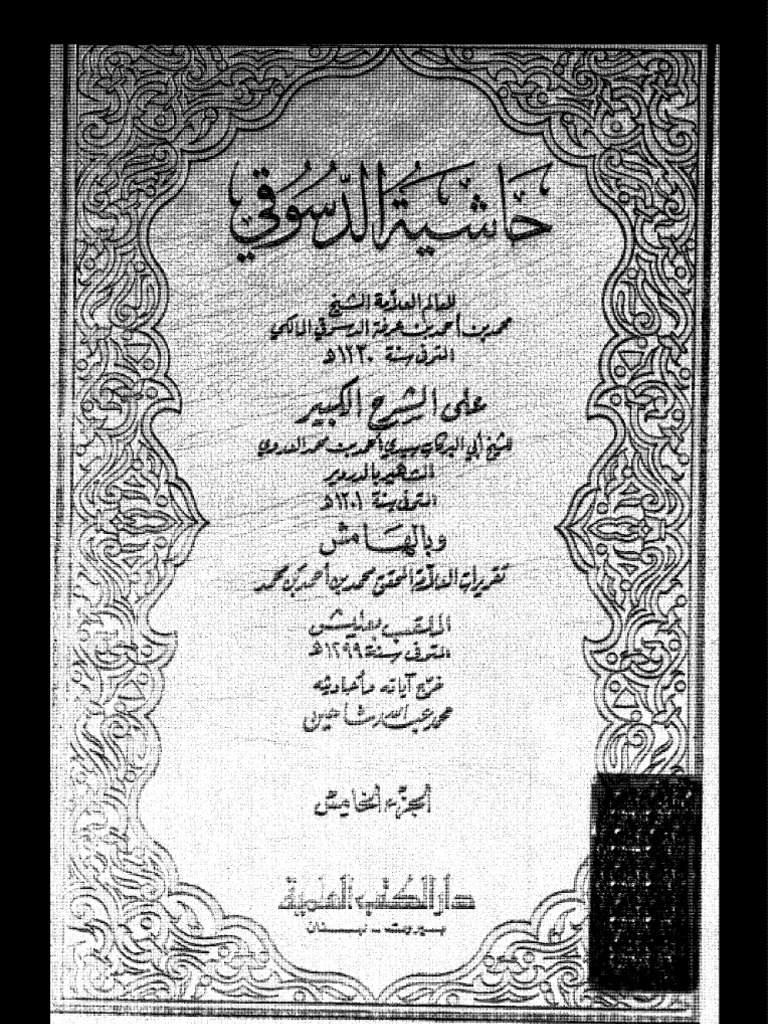 حَاشِيَة الدّسُوقي
للعالم العلّامة الشيخ
محمد بن أحمد بن عرفة الدسوقي المالكي
المتوفى سنة ١٢٣٠هـ
على الشرح الكبير
للشيخ أبي البركات سيدي أحمد بن محمد العدوي
الشهير بالدردير
المتوفى سنة ١٢٠١هـ
وبالهامش
تقريرات العلّامة المحقق محمد بن أحمد بن محمد
الملقب بعليش
المتوفى سنة ١٢٩٩هـ
خرج آياته وأحاديثه
محمد عبد الله شاهين
الجزء الخامس
دار الكتب العلمية
بيروت - لبنان